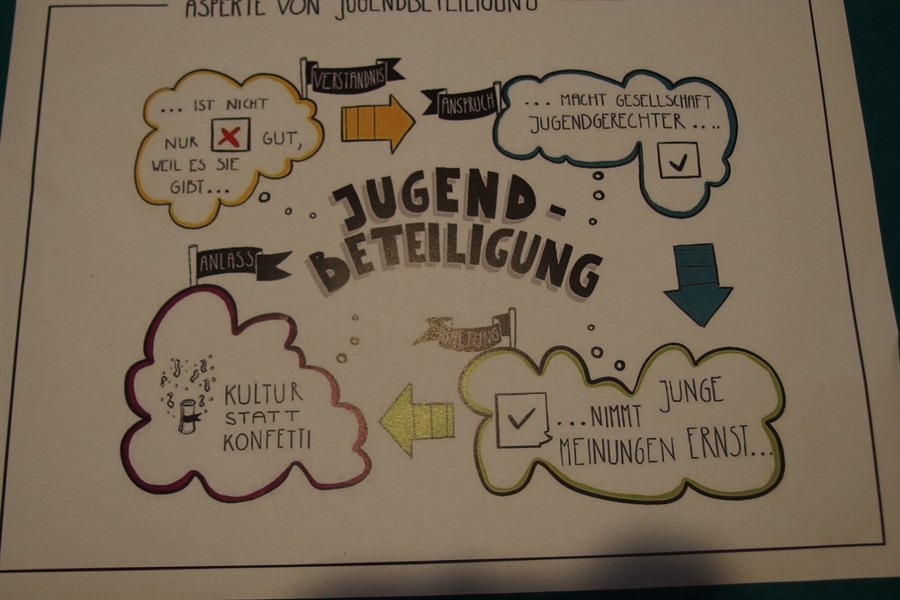 ASPEKTE VON JUGENDBETEILIGUNG
VERSTÄNDNIS
... IST NICHT
NUR GUT,
WEIL ES SIE
GIBT...
ANSPRUCH
... MACHT GESELLSCHAFT
JUGENDGERECHTER ....
JUGEND-
BETEILIGUNG
ANLASS
KULTUR
STATT
KONFETTI
...NIMMT JUNGE
MEINUNGEN ERNST...